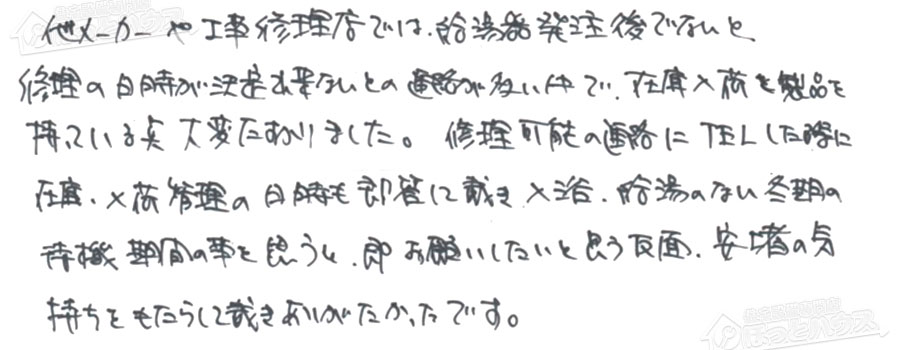 他メーカーや工事修理店では、給湯器発注後でないと
修理の日時が決定出来ないとの連絡が多い中で、在庫入荷を製品を
持っている点大変たすかりました。修理可能の連絡にTELした際に
在庫、入荷修理の日時も即答して戴き入浴、給湯のない冬期の
待機期間の事を思うと、即お願いしたいと思う反面、安堵の気
持ちをもたらして戴きありがたかったです。
ほっとハウス